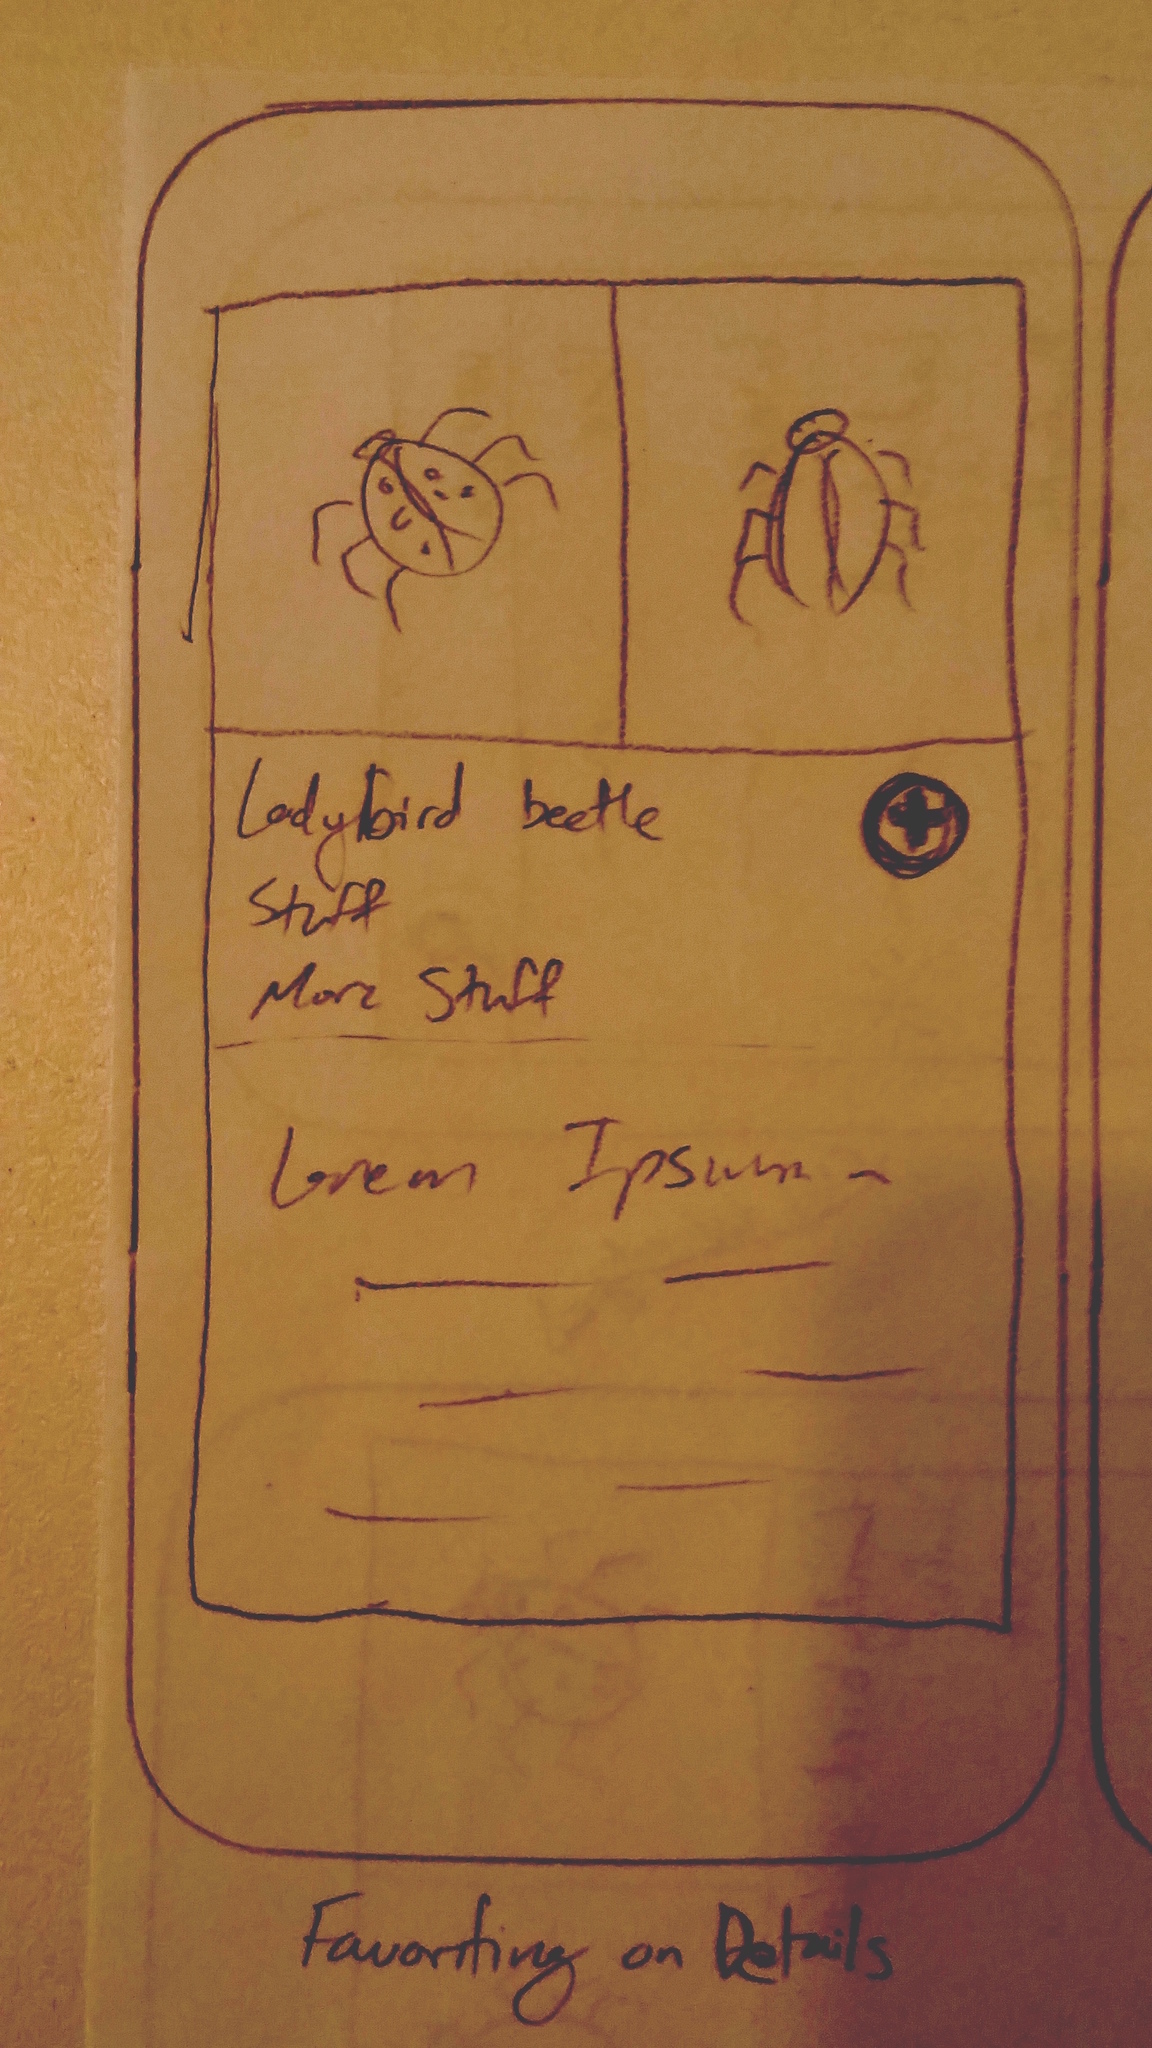 Ladybird beetle
Stuff
More Stuff
Lorem Ipsum
Favoriting on Details